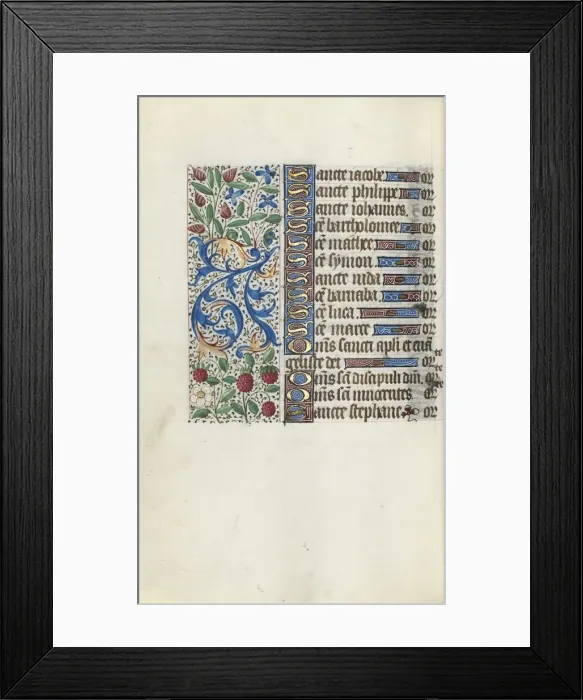 Sancte iacobe or
Sancte philippe or
Sancte iohannes. or
Scē bartholomee or
Scē mathee or
Scē symon or
Sancte iuda or
Scē barnaba or
Scē luca or
Scē marce or
Omīs sancti apłi et euā
geliste dei or
Omīs scī discipuli dīni. or
Omīs scī innocētes or
Sancte stephane or